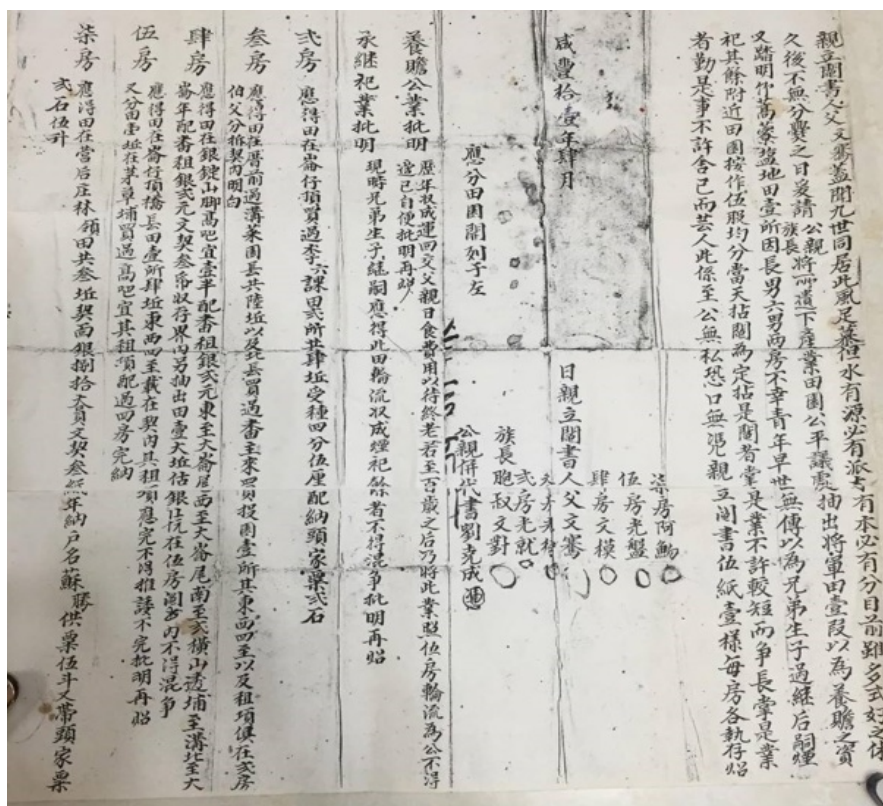 親立鬮書人父文騫蓋聞九世同居此風足慕但水有源必有派木有本必有分目前雖多式好之休
久後不無分爨之日爰請公親族長將所遺下產業田園公平議處抽出將軍田壹段以為養贍之資
又踏明竹篙藔盐地田壹所因長男六男兩房不幸青年早世無傳以為兄弟生子過継后嗣煙
祀其餘附近田園按作伍股均分當天拈鬮為定拈是鬮者掌是業不許較短而爭長掌是業
者勤是事不許舍己而芸人此係至公無私恐口無憑親立鬮書伍紙壹樣每房各執存炤
柒房阿
伍房光盤
肆房文模
咸豐拾壹年肆月 日親立鬮書人父文騫
弍房光就
族長胞叔文對
公親併代書劉克成
應分田園鬮列于左
養贍公業批明 歷年收成運回交父親日食費用以待終老若至百歲之後乃將此業照伍房輪流為公不得
邊己自便批明再炤
承継祀業批明 現時兄弟生子継嗣應得此田輪流收成煙祀餘者不得混爭批明再炤
弍房 應得田在崙仔頂買過李六課田弍所共肆坵受種四分伍厘配納頭家粟弍石
叁房 應得田在厝前過溝菜園長共陸坵以及北長買過番主來買投園壹所其東西四至以及租項俱在弍房
伯父分拆契內明白
肆房 應得田在銀錠山脚高吧宜壹半配番租銀弍元東至大崙尾西至大崙尾南至弍橫山透埔至溝北至大
崙年配番租銀弍元文契叁帋收存界內另抽出田壹大坵估銀 在伍房鬮內不得混爭
伍房 應得田在崙仔頂橋長田壹所肆坵東西四至載在契內其租項應完不得推諉不完批明再炤
又分田壹坵在 草埔買過高吧宜其租項配過四房完納
柒房 應得田在營后庄林領田共叁坵契面銀捌拾大員文契叁紙年納戶名蘇勝供粟伍斗又帶頭家粟
弍石伍斗